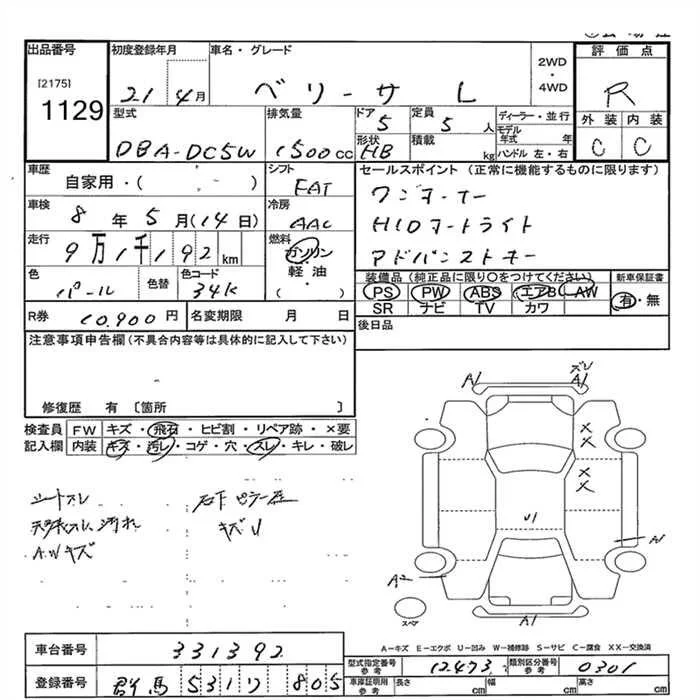 出品番号
[2175]
1129
初度登録年月
21 4月
車名・グレード
ベリーサ L
2WD
・
4WD
評価点
R
型式
DBA-DC5W
排気量
1500cc
ドア
5
形状
HB
定員
5人
積載
kg
ディーラー・並行
モデル年式 年
ハンドル 左・右
外装 内装
C C
車歴
自家用・( )
シフト
FAT
車検
8年5月(14日)
冷房
AAC
走行
9万1千192km
燃料
ガソリン
・
軽油
( )
色
パール
色替
色コード
34K
R券
10,900円
名変期限 月 日
セールスポイント(正常に機能するものに限ります)
ワンオーナー
HIDオートライト
アドバンストキー
装備品(純正品に限り○をつけてください)
PS PW ABS エアB AW
SR ナビ TV カワ
新車保証書
有・無
後日品
注意事項申告欄(不具合内容等は具体的に記入して下さい)
修復歴 有 〔箇所 〕
検査員 FW キズ・飛石・ヒビ割・リペア跡・×要
記入欄 内装 キズ・汚レ・コゲ・穴・スレ・キレ・破レ
シートスレ
天張スレ、汚れ
A.Wキズ
右下ピラー座
キズU
A1
ズレ
A1
×
×
×
×
U1
A1
A2
A1
スペア
A-キズ E-エクボ U-凹み W-補修跡 S-サビ C-腐食 XX-交換済
車台番号 331392
登録番号 群馬 531 り 805
型式指定番号 参考 12473
類別区分番号 参考 0301
車庫証明用 参考 長さ cm 幅 cm 高さ cm